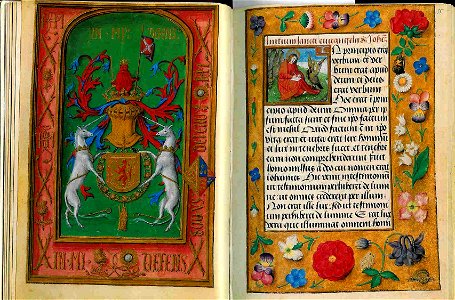 IN MY DEFENS
IN MY DEFENS
Initium sancti euangelii s Iohē
In principio erat
verbum et ver
bum erat apud
deum et deus
erat verbum
Hoc erat in prin
cipio apud deum Omnia per ip
sum facta sunt et sine ipso factum
est nichil Quod factum est in ipo
vita erat et vita erat lux hominum
et lux in tenebris lucet et tenebre
eam non comprehenderunt Fuit
homo missus a deo cui nomen erat
iohannes Hic venit in testimonium
ut testimonium perhiberet de lumi
ne ut omnes crederent per illum
Non erat ille lux sed ut testimoni
um perhiberet de lumine Erat lux
vera que illuminat omnem homi